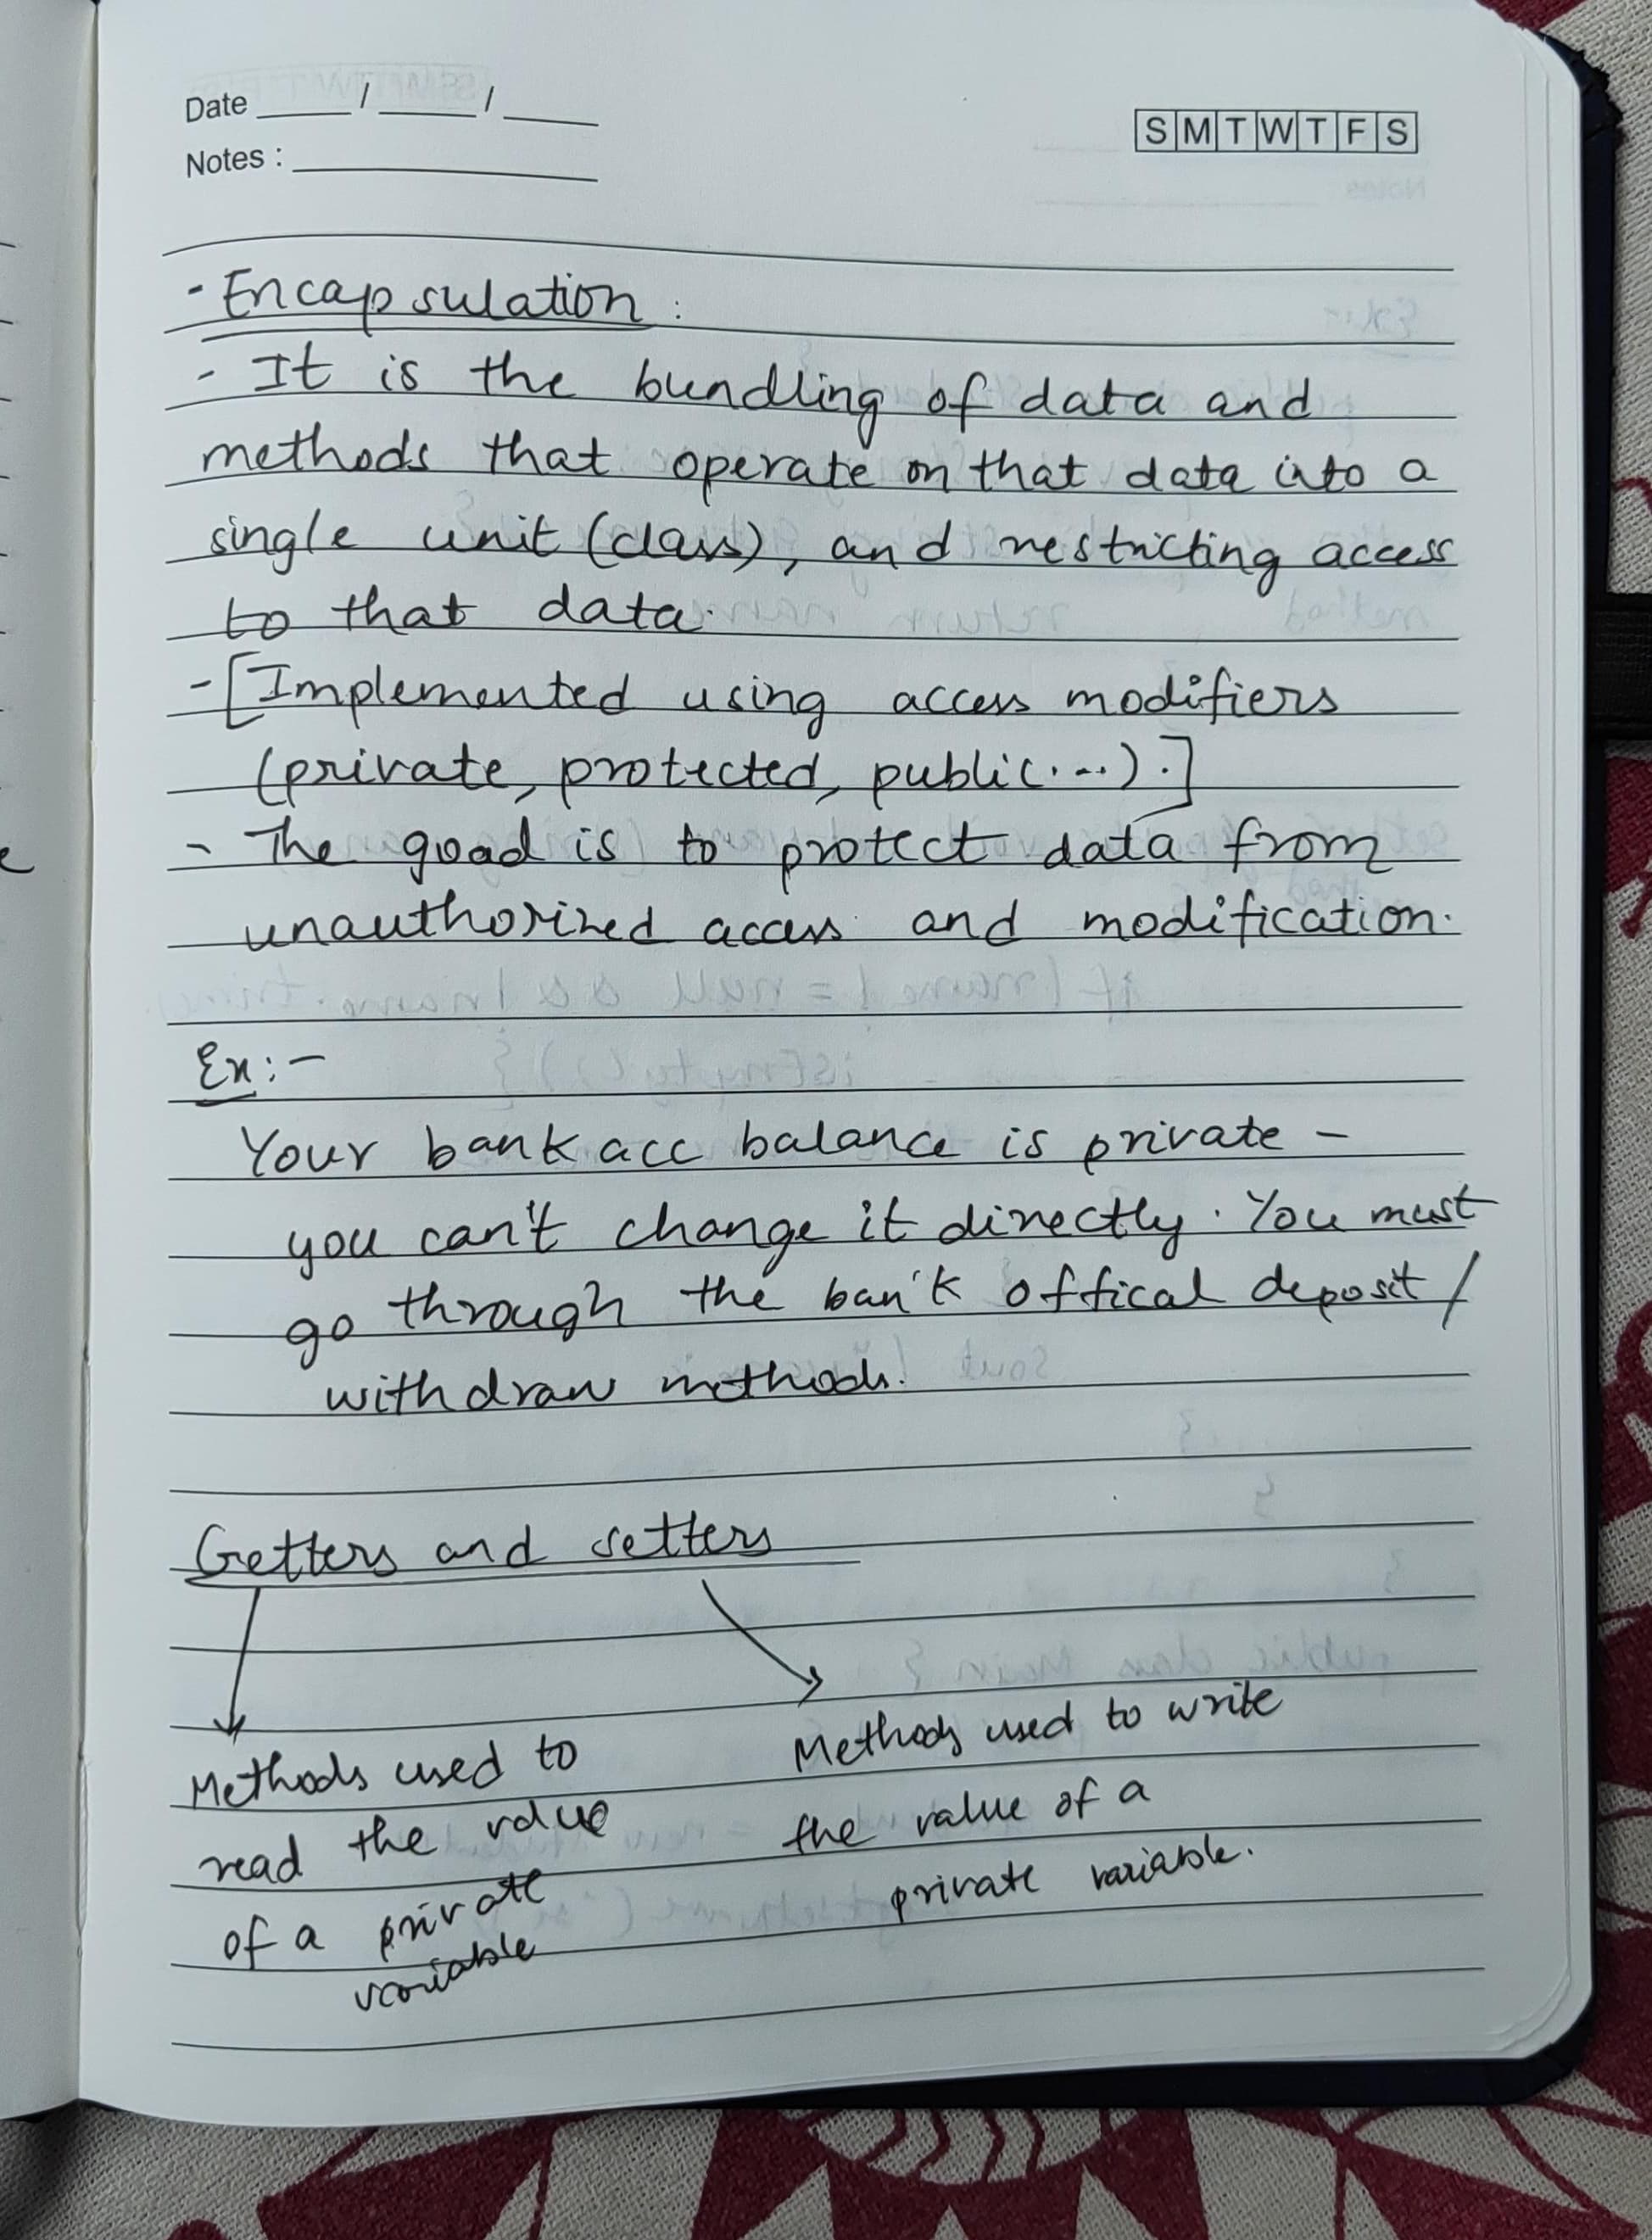 Date ____/____/____
SMTWTFS
Notes : ____________
- Encapsulation :
- It is the bundling of data and
methods that operate on that data into a
single unit (class), and restricting access
to that data.
- [Implemented using access modifiers
(private, protected, public...).]
- The goad is to protect data from
unauthorized access and modification.
Ex:-
Your bank acc balance is private -
you can't change it directly. You must
go through the ban'k offical deposit/
withdraw methods.
Getters and setters
Methods used to
read the value
of a private
variable
Methods used to write
the value of a
private variable.